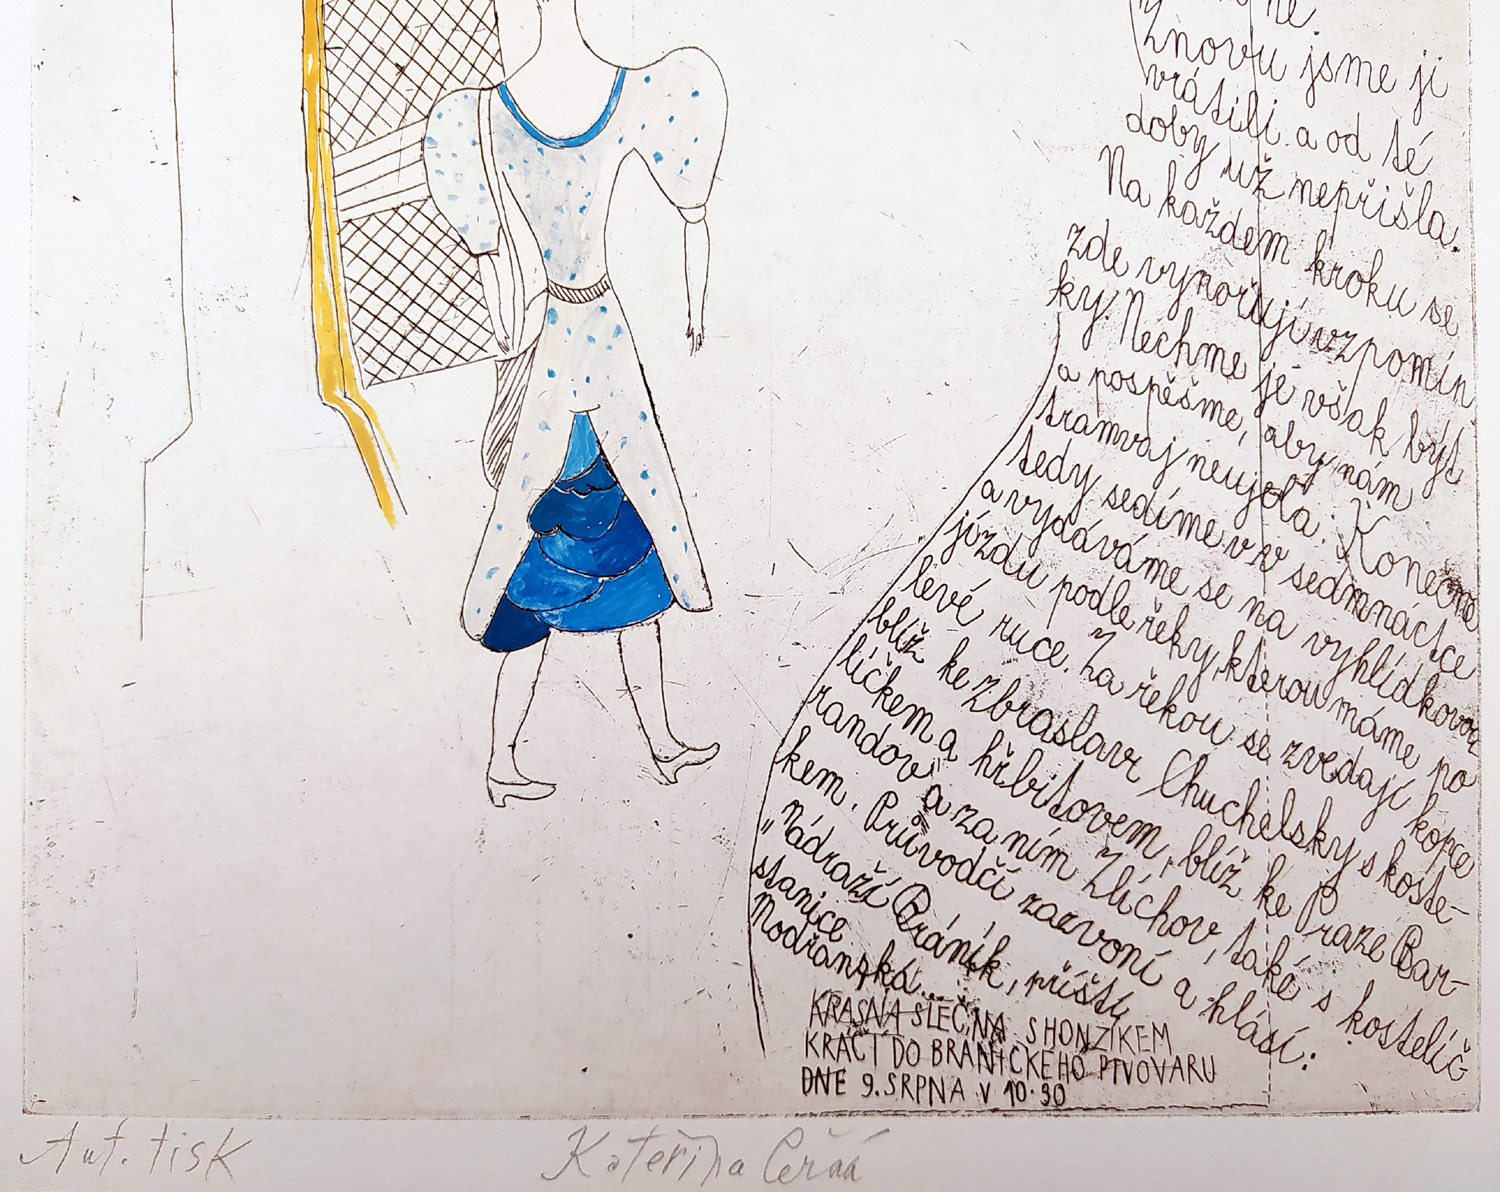 ne.
Znovu jsme ji
vrátili a od té
doby už nepřišla.
Na každem kroku se
zde vynořují vzpomín
ky. Nechme je však být
a pospěšme, aby nám
tramvaj neujela. Konečně
tedy sedíme v sedmnáctce
a vydáváme se na vyhlídkovou
jízdu podle řeky, kterou máme po
levé ruce. Za řekou se zvedají kopce
blíž ke Zbraslavi Chuchelský s koste-
líčkem a hřbitovem, blíž ke Praze Bar-
randov a za ním Zlíchov, také s kostelíč
kem. Průvodčí zazvoní a hlásí:
„Nádraží Bráník, příští
stanice
Modřanská...
KRÁSNA SLEČNA S HONZÍKEM
KRÁČÍ DO BRANICKÉHO PIVOVARU
DNE 9. SRPNA V 10.30
Aut. tisk
Kateřina Černá